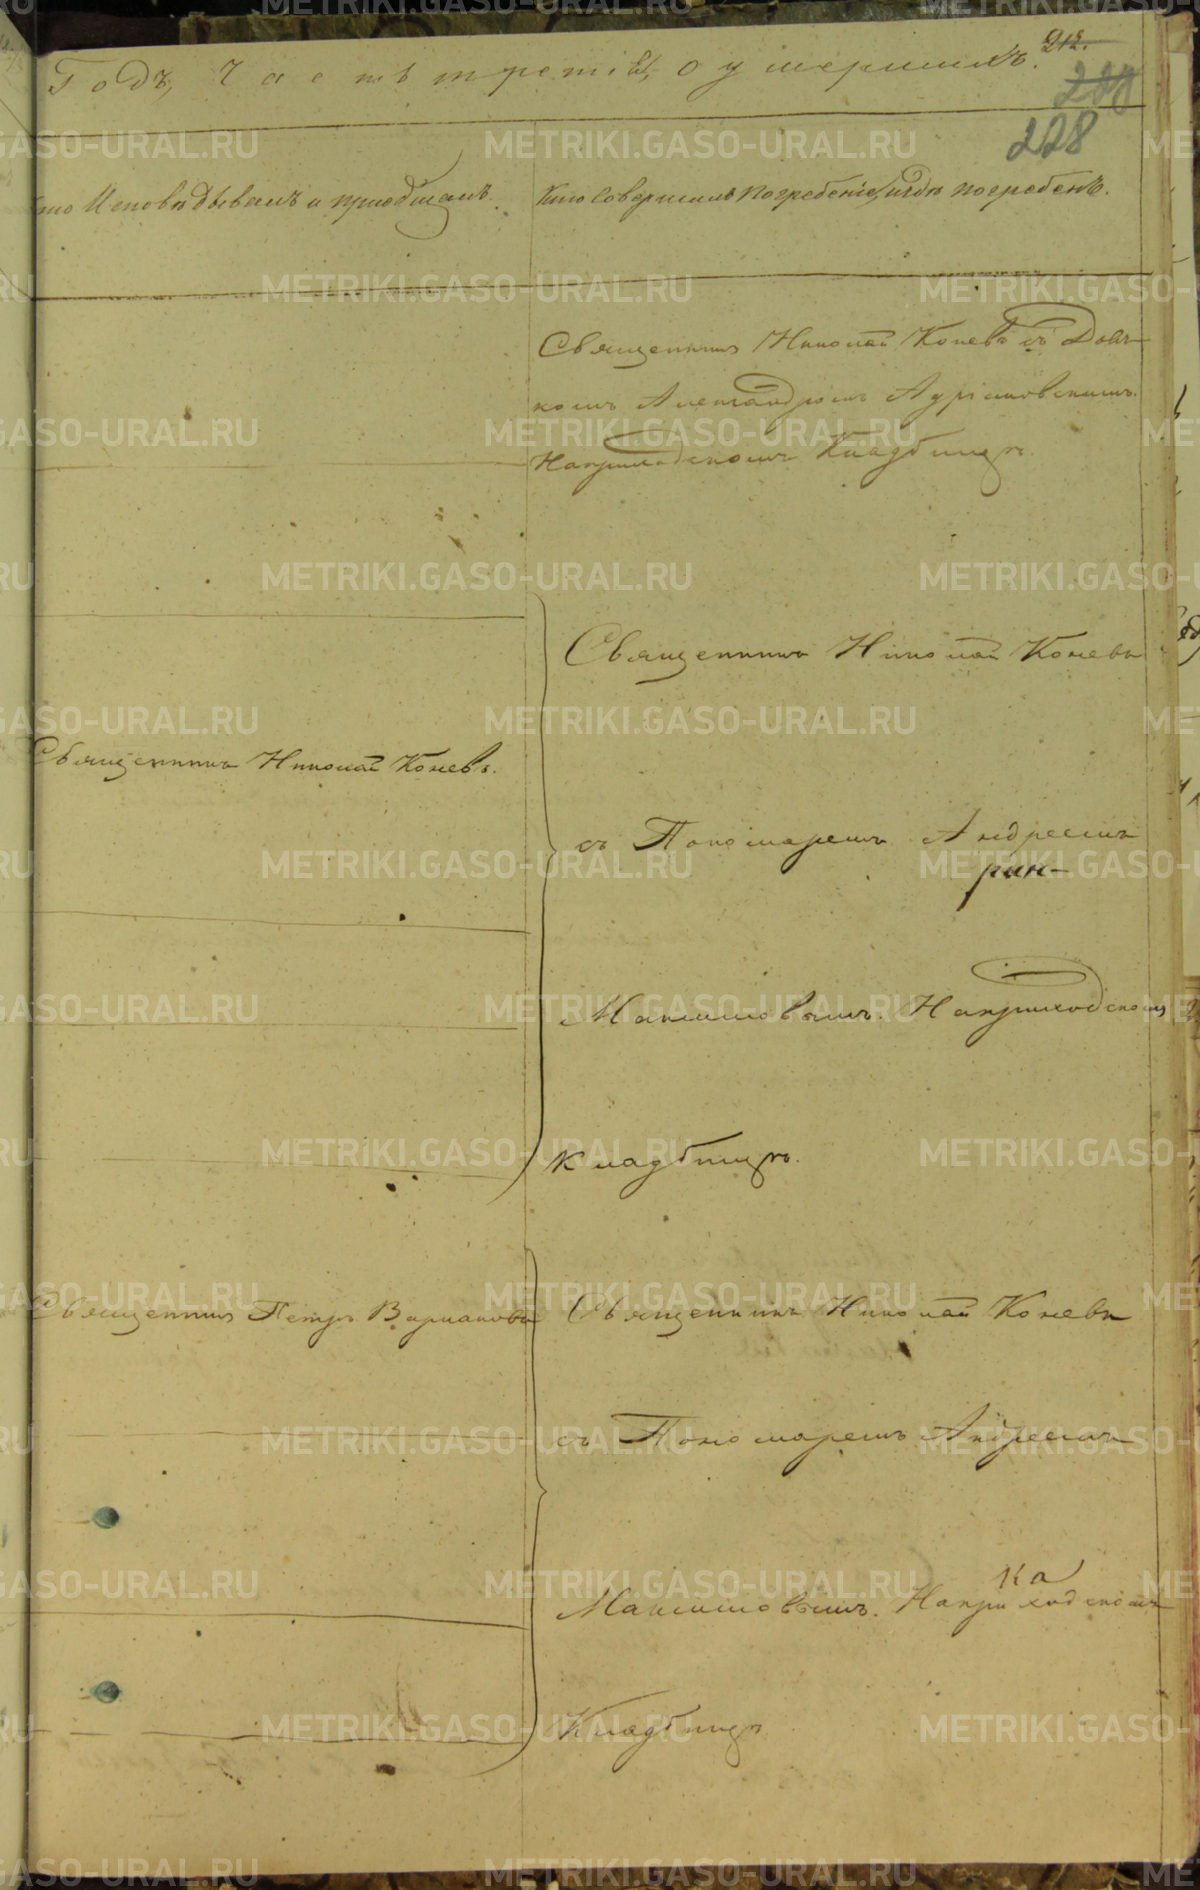 Годъ, Часть третія, о умершихъ.
212.
228
228
кто Исповѣдывалъ и пріобщалъ.
Кто Совершилъ Погребеніе, и гдѣ погребенъ.
Священникъ Николай Коневъ съ Дьяч-
комъ Александромъ
На приходскомъ Кладбищѣ.
Священникъ Николай Коневъ
Священникъ Николай Коневъ.
съ Пономаремъ Андреемъ
рин-
Максимовымъ. На приходскомъ
Кладбищѣ.
Священникъ Петръ
Священникъ Николай Коневъ
съ Пономаремъ Андреемъ
ка
Максимовымъ. На приходскомъ
Кладбищѣ
METRIKI.GASO-URAL.RU